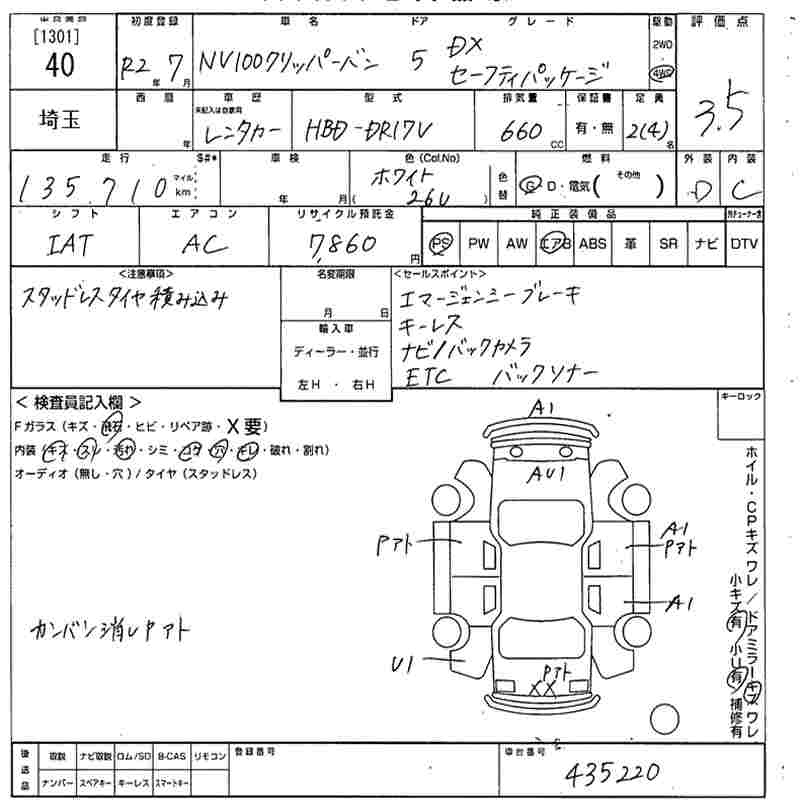 [1301]
40
初度登録
R2 年 7 月
車名
NV100クリッパーバン
ドア
5
グレード
DX
セーフティパッケージ
駆動
2WD
4WD
評価点
3.5
埼玉
西暦
年
車歴
未記入は自家用
レンタカー
型式
HBD-DR17V
排気量
660 CC
保証書
有・無
定員
2(4) 名
走行 $#*
135,710 マイル km
車検
年 月
色(Col.No)
ホワイト
( 26U )
色替
燃料
G・D・電気( その他 )
外装
D
内装
C
シフト
IAT
エアコン
AC
リサイクル預託金
7,860 円
純正装備品
PS PW AW エアB ABS 革 SR ナビ DTV
<注意事項>
スタッドレスタイヤ積み込み
名変期限
月 日
輸入車
ディーラー・並行
左H ・ 右H
<セールスポイント>
エマージェンシーブレーキ
キーレス
ナビ/バックカメラ
ETC バックソナー
<検査員記入欄>
Fガラス(キズ・飛石・ヒビ・リペア跡・X要)
内装(キズ・スレ・汚れ・シミ・コゲ・穴・キレ・破れ・割れ)
オーディオ(無し・穴)/タイヤ(スタッドレス)
キーロック
A1
AU1
Pアト
A1
Pアト
A1
カンバン消しPアト
U1
Pアト
XX
ホイル・CPキズ ワレ/ドアミラーキズ ワレ
小キズ有 小U有/補修有
後送品
取説 ナビ取説 ロム/SD B-CAS リモコン
ナンバー スペアキー キーレス スマートキー
登録番号
車台番号
435220